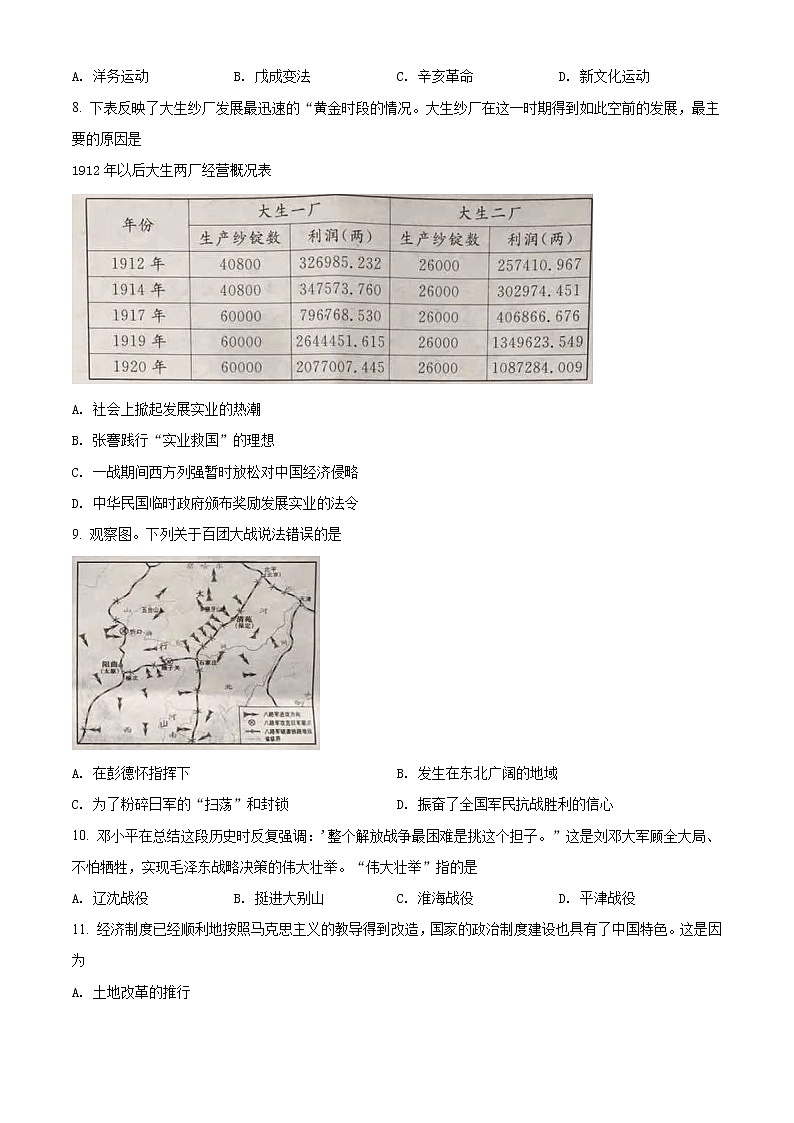 A. 洋务运动 B. 戊戌变法 C. 辛亥革命 D. 新文化运动
8. 下表反映了大生纱厂发展最迅速的“黄金时段的情况。大生纱厂在这一时期得到如此空前的发展，最主
要的原因是
1912年以后大生两厂经营概况表
年份 大生一厂 大生二厂
生产纱锭数 利润(两) 生产纱锭数 利润(两)
1912 年 40800 326985.232 26000 257410.967
1914 年 40800 347573.760 26000 302974.451
1917 年 60000 796768.530 26000 406866.676
1919 年 60000 2644451.615 26000 1349623.549
1920 年 60000 2077007.445 26000 1087284.009
A. 社会上掀起发展实业的热潮
B. 张謇践行“实业救国”的理想
C. 一战期间西方列强暂时放松对中国经济侵略
D. 中华民国临时政府颁布奖励发展实业的法令
9. 观察图。下列关于百团大战说法错误的是
北平
(北京)
天津
五台山
清苑
(保定)
阳曲
(太原)
榆次
娘子关
石家庄
大
行
河
北
山
西
河
南
八路军进攻方向
八路军攻克日军据点
八路军破袭铁路地段
省级界
A. 在彭德怀指挥下 B. 发生在东北广阔的地域
C. 为了粉碎日军的“扫荡”和封锁 D. 振奋了全国军民抗战胜利的信心
10. 邓小平在总结这段历史时反复强调：'整个解放战争最困难是挑这个担子。”这是刘邓大军顾全大局、
不怕牺牲，实现毛泽东战略决策的伟大壮举。“伟大壮举”指的是
A. 辽沈战役 B. 挺进大别山 C. 淮海战役 D. 平津战役
11. 经济制度已经顺利地按照马克思主义的教导得到改造，国家的政治制度建设也具有了中国特色。这是因
为
A. 土地改革的推行